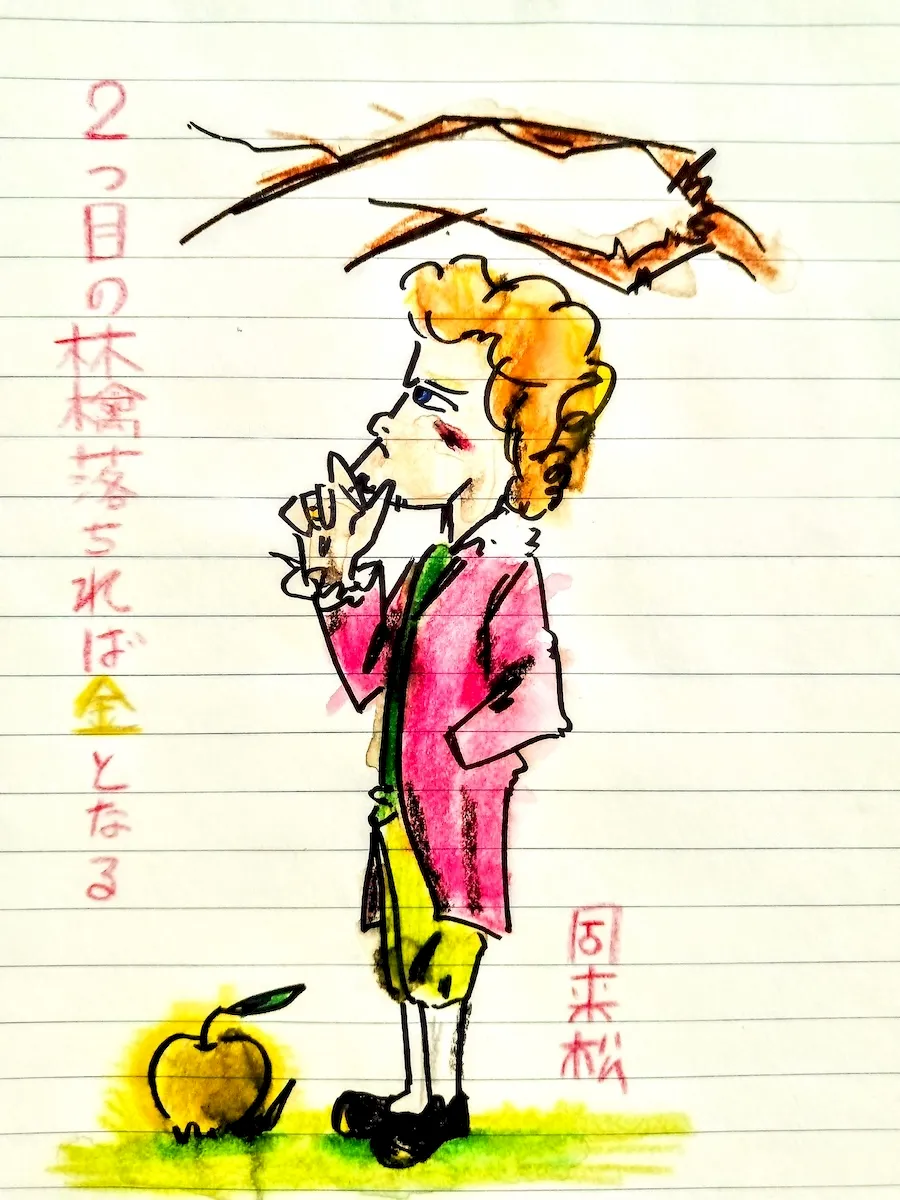 2つ目の林檎落ちれば金となる
固来松